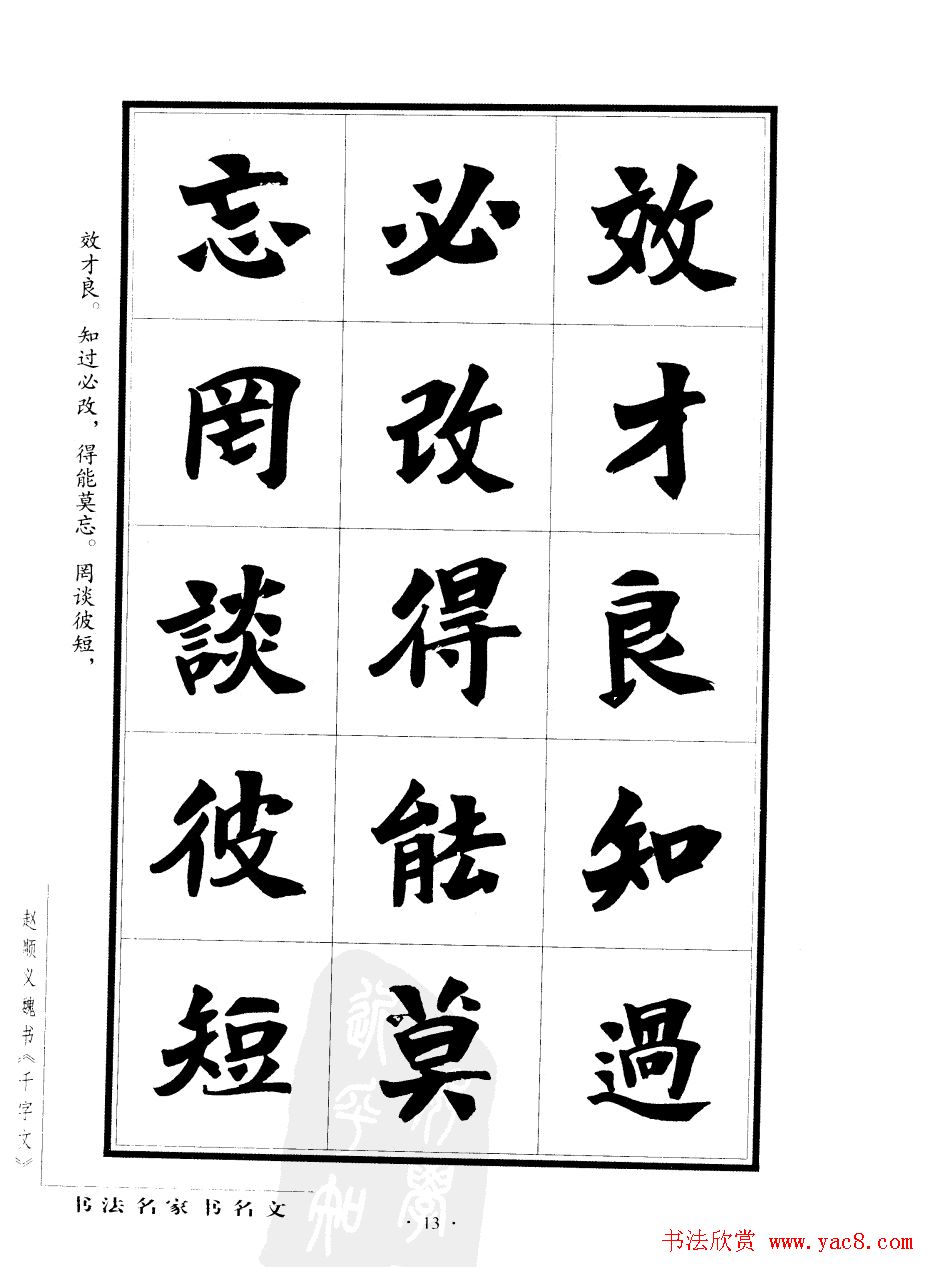 效才良知過
必改得能莫
忘罔談彼短
效才良。知过必改，得能莫忘。罔谈彼短，
赵顺义魏书《千字文》
书法名家书名文
·13·
书法欣赏 www.yac8.com